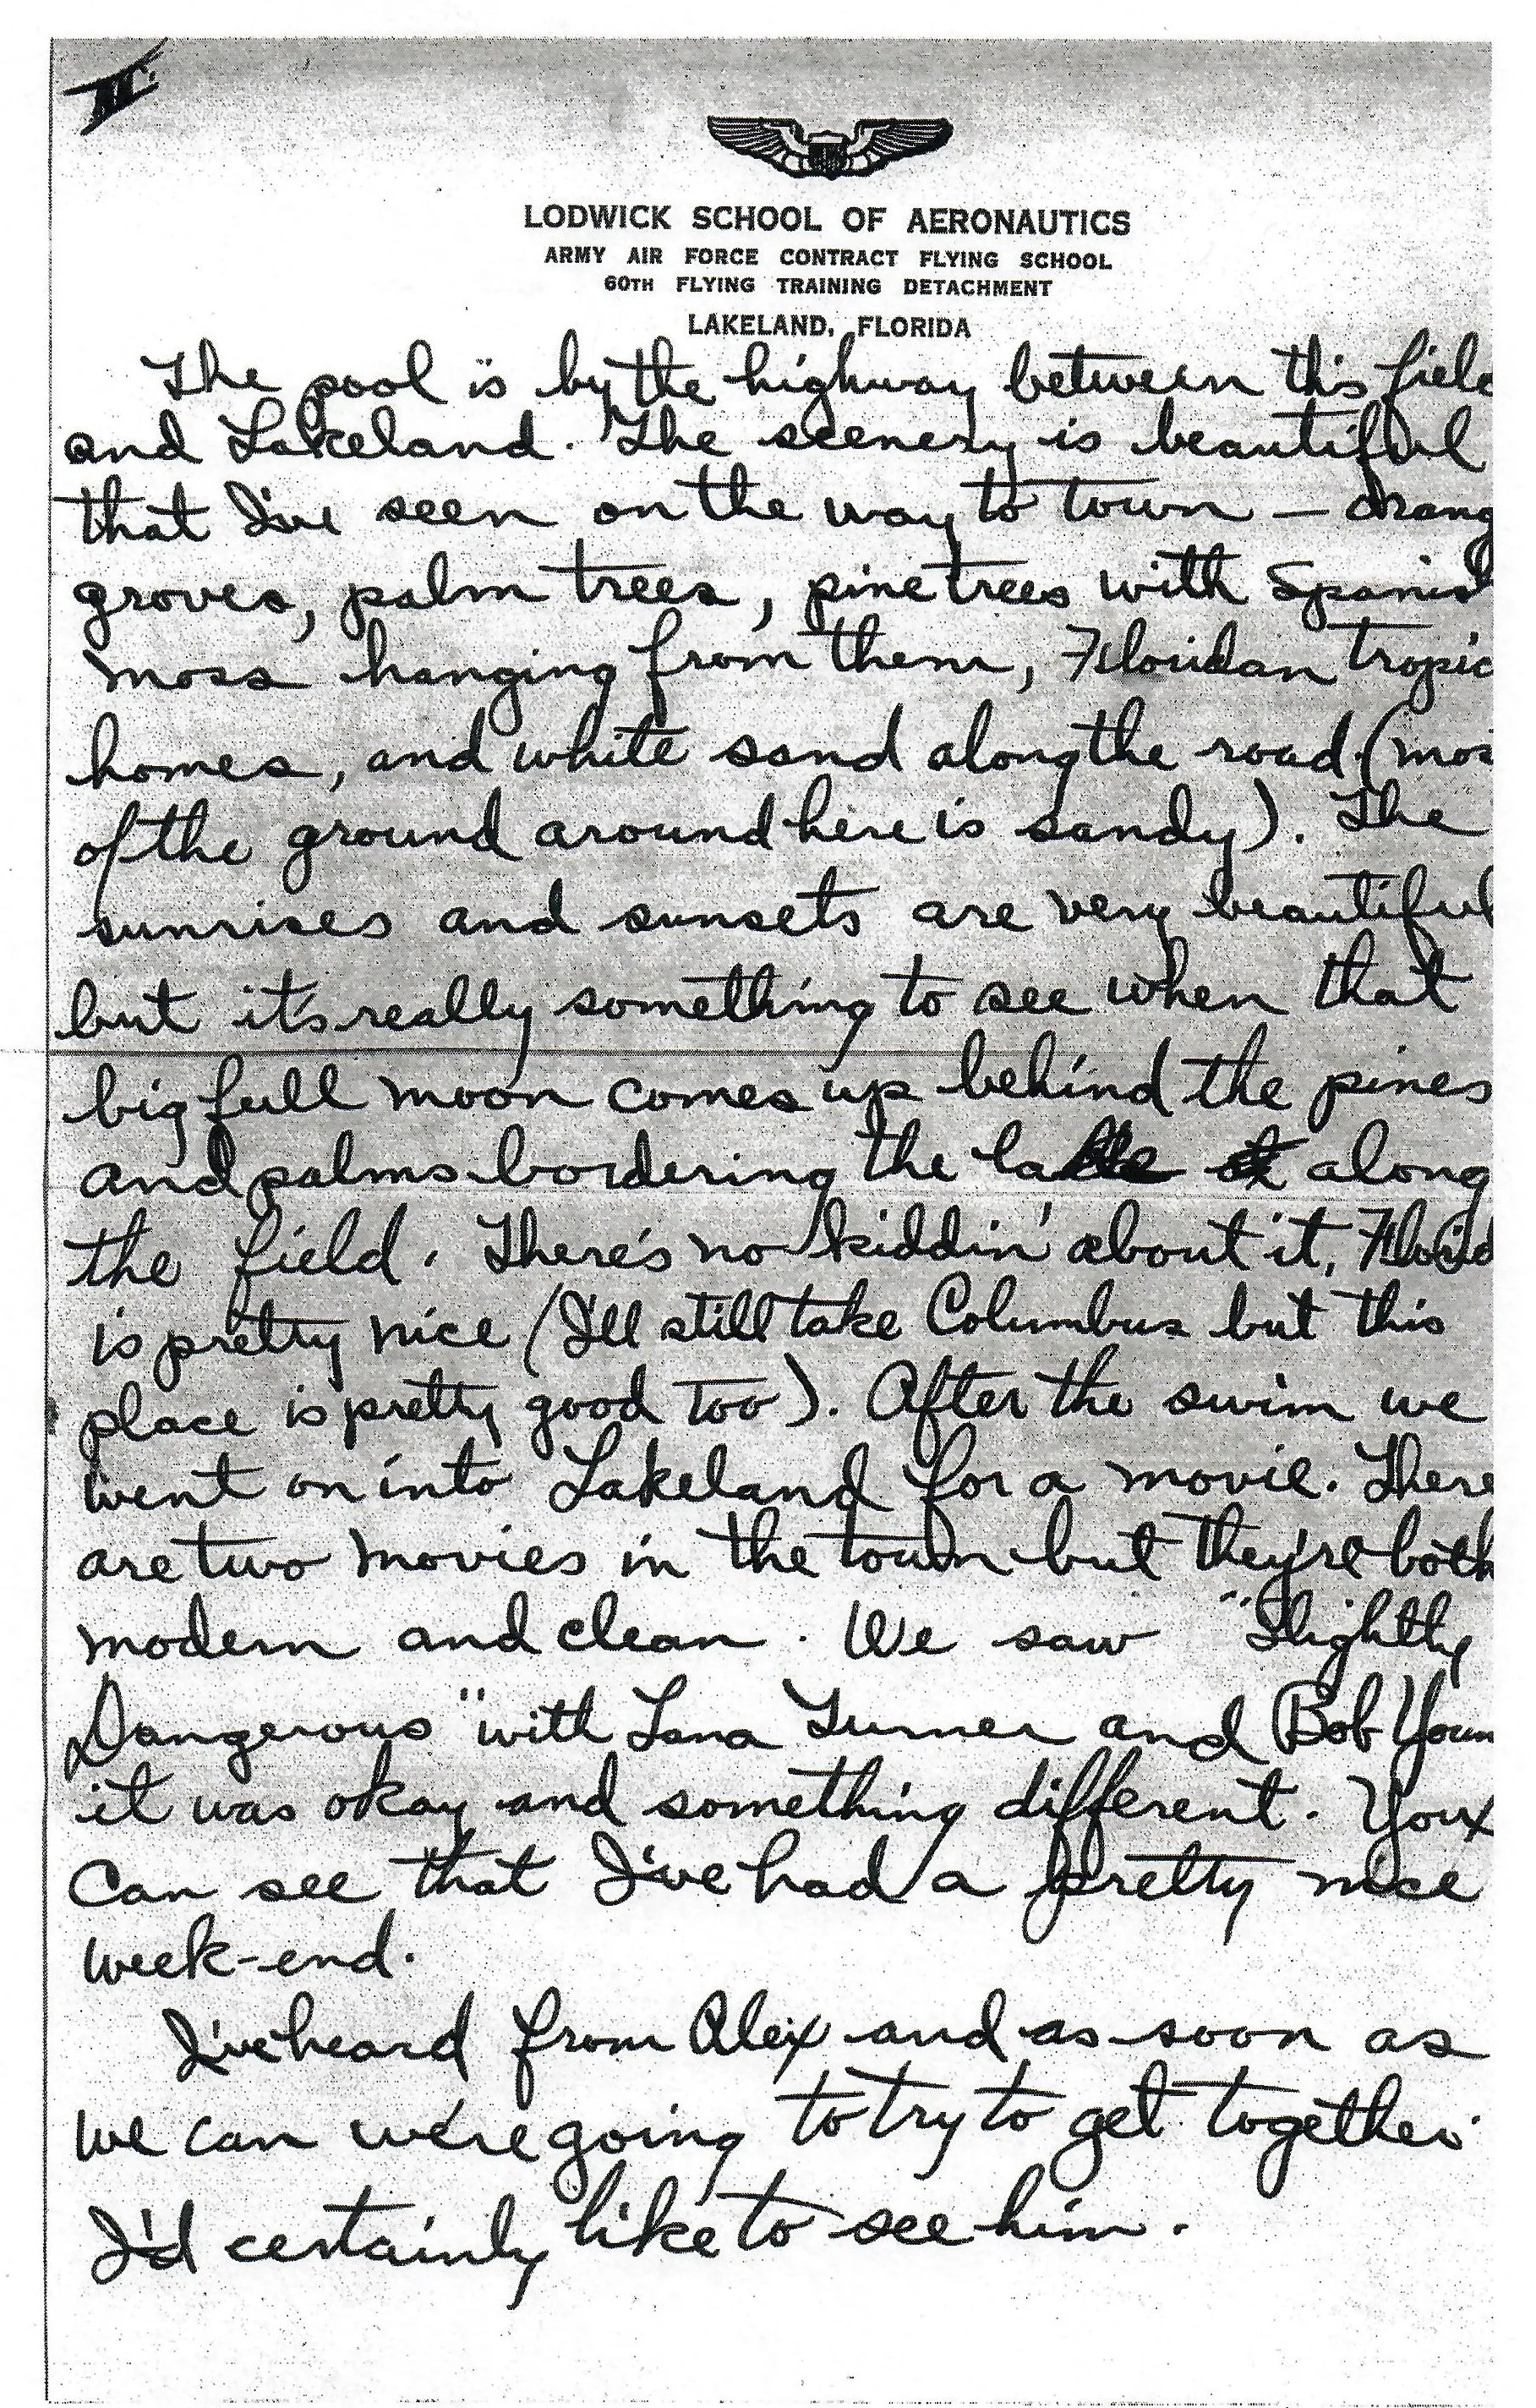 III.
LODWICK SCHOOL OF AERONAUTICS
ARMY AIR FORCE CONTRACT FLYING SCHOOL
60TH FLYING TRAINING DETACHMENT
LAKELAND, FLORIDA
The pool is by the highway between this fiel
and Lakeland. The scenery is beautiful
that I've seen on the way to town — orang
groves, palm trees, pine trees with Spanis
moss hanging from them, Floridan tropic
homes, and white sand along the road (mos
of the ground around here is sandy). The
sunrises and sunsets are very beautiful
but it's really something to see when that
big full moon comes up behind the pines
and palms bordering the lake along
the field. There's no kiddin' about it, Florid
is pretty nice (I'll still take Columbus but this
place is pretty good too). After the swim we
went on into Lakeland for a movie. There
are two movies in the town but they're both
modern and clean. We saw "Slightly
Dangerous" with Lana Turner and Bob Youn
it was okay and something different. You
can see that I've had a pretty nice
week-end.
I've heard from Alex and as soon as
we can we're going to try to get together.
I'd certainly like to see him.